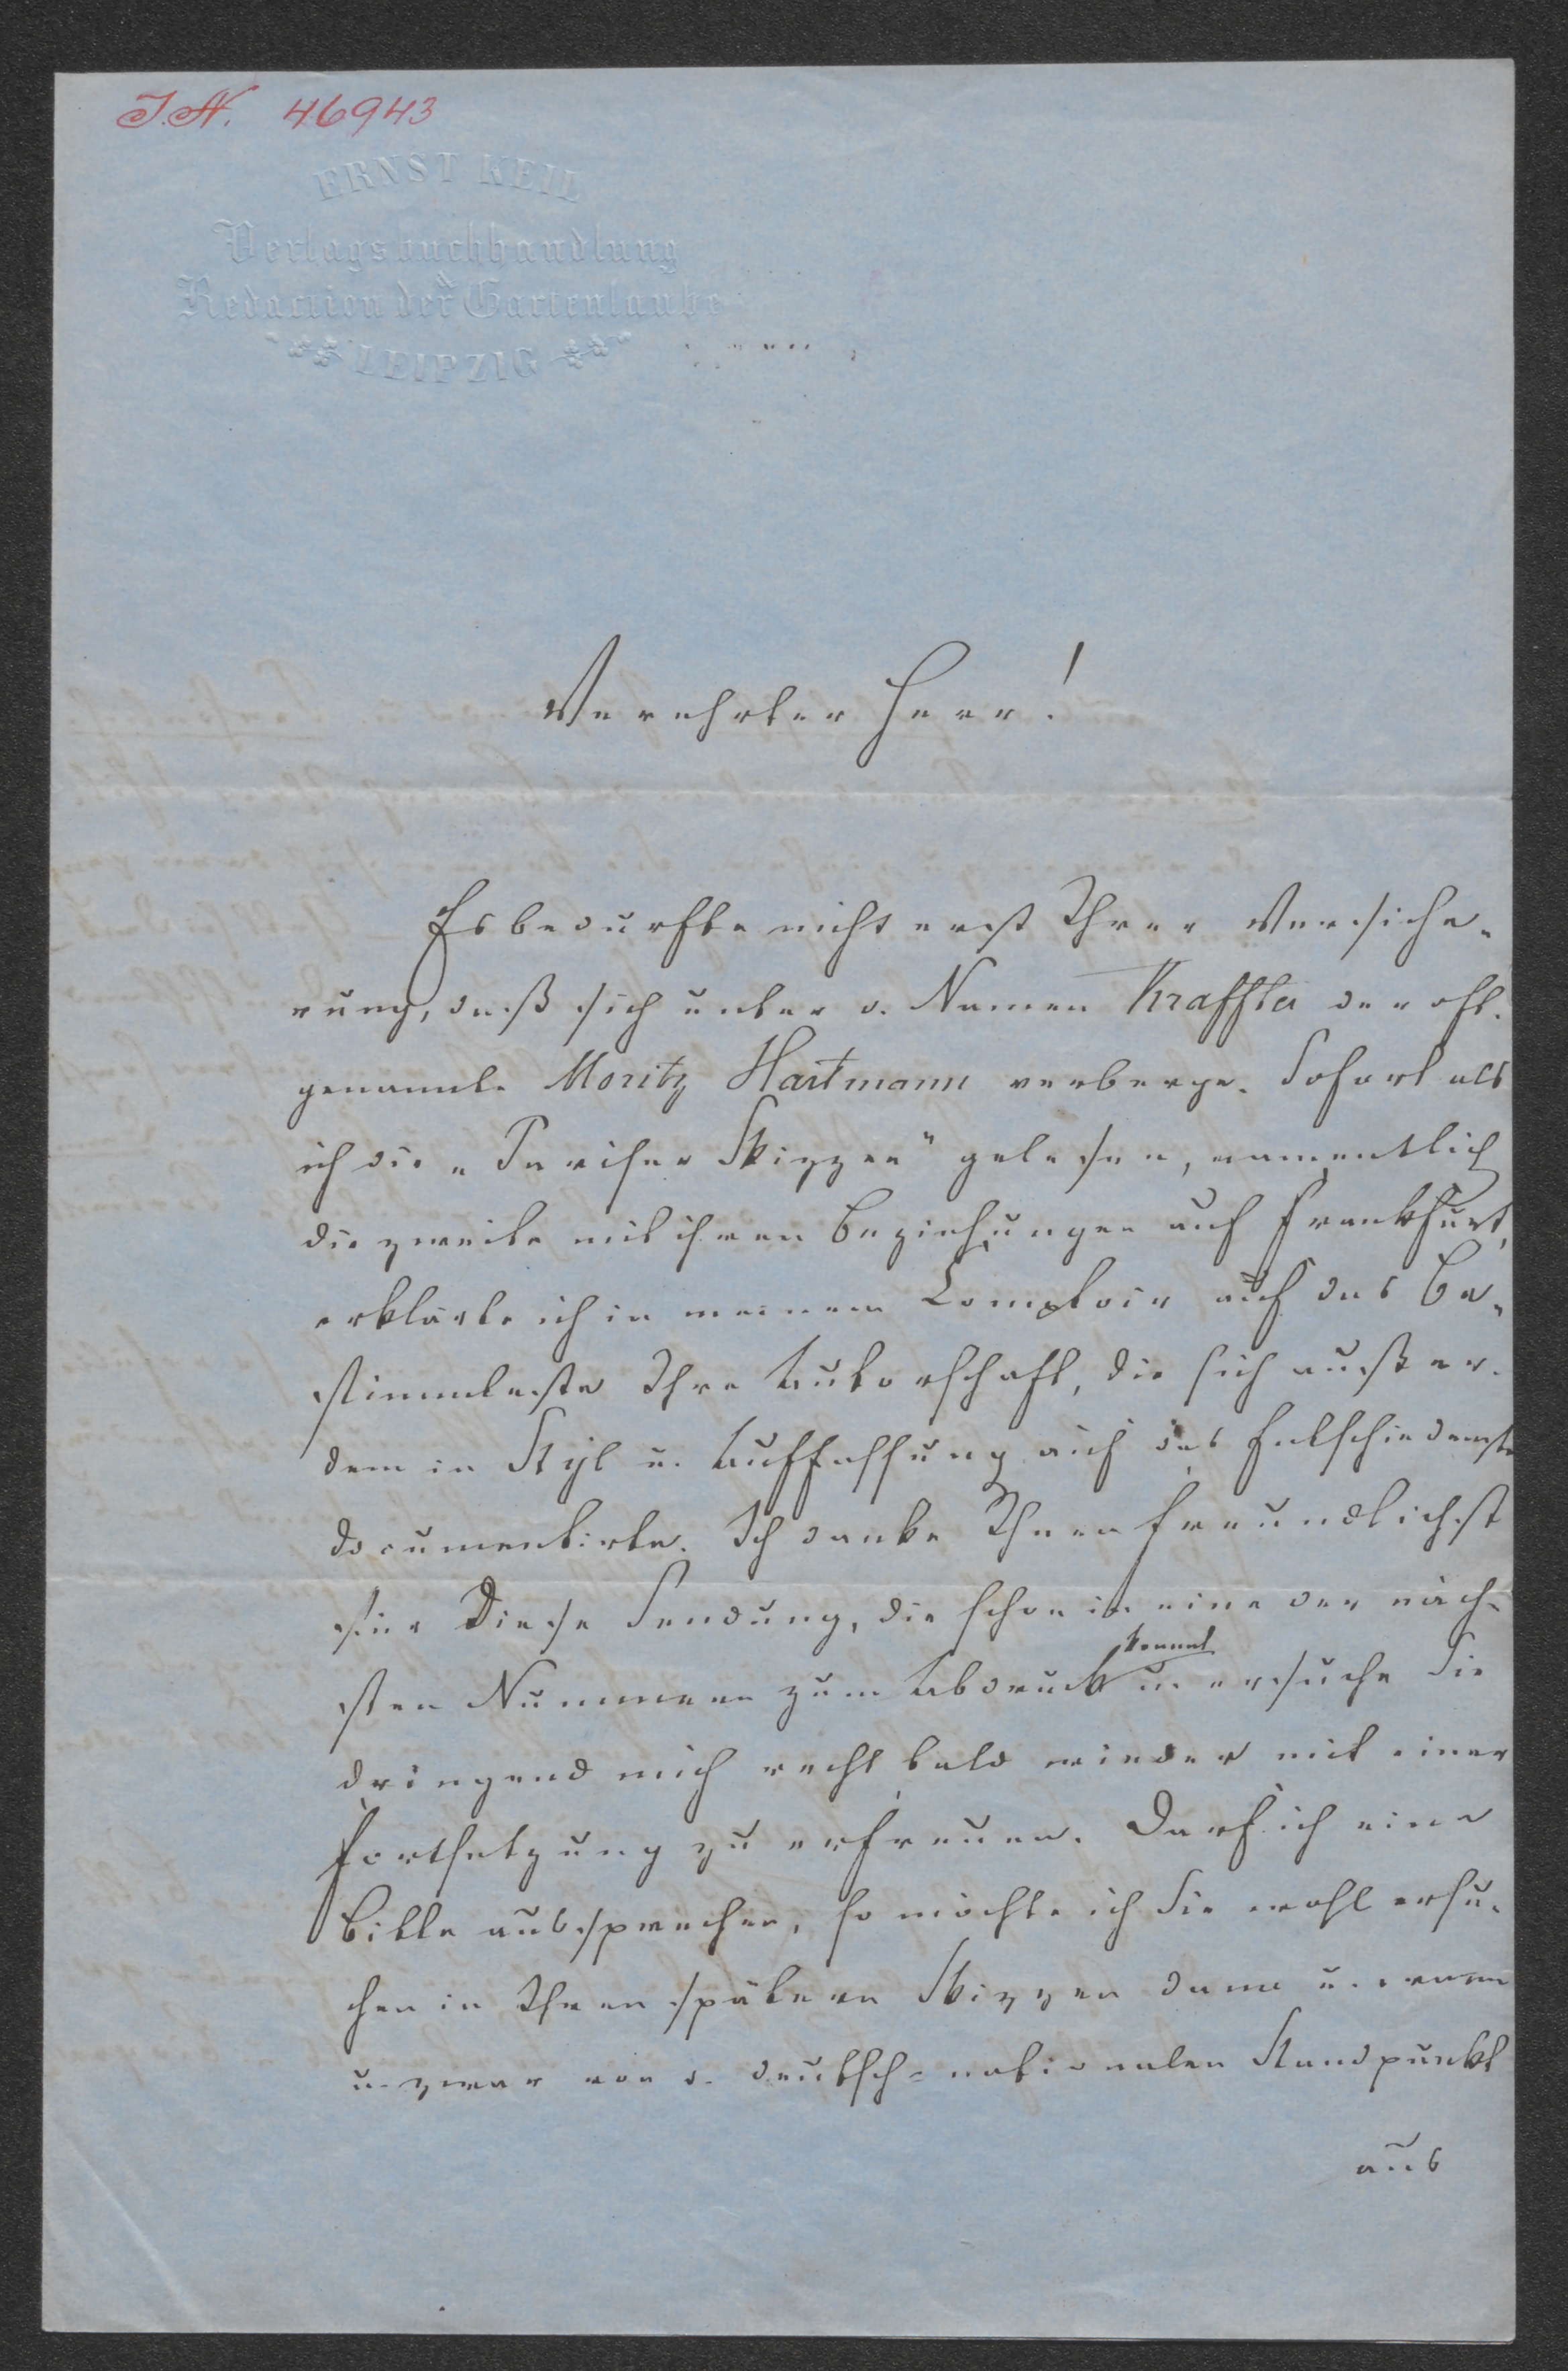 J.N. 46943
ERNST KEIL
Verlagsbuchhandlung
&
Redaction der Gartenlaube
LEIPZIG
Verehrter Herr!
Es bedurfte nicht erst Ihrer Versiche-
rung, daß sich unter d. Namen Kraffter der oft-
genannte Moritz Hartmann verberge. Sofort als
ich die „Pariser Skizzen“ gelesen, namentlich
die zweite mit ihren Beziehungen auf Frankfurt,
erklärte ich in meinem Comptoir auf das Be-
stimmteste Ihre Autorschaft, die sich außer-
dem in Styl u. Auffassung auf das Entschiedenste
documentirte. Ich danke Ihnen freundlichst
für diese Sendung, die schon in eine der näch-
sten Nummern zum Abdruck kommt u. ersuche Sie
dringend mich recht bald wieder mit einer
Fortsetzung zu erfreuen. Darf ich eine
Bitte aussprechen, so möchte ich Sie wohl ersu-
chen in Ihren spätern Skizzen dann u. wann
u. zwar von d. deutsch-nationalen Standpunkt
aus